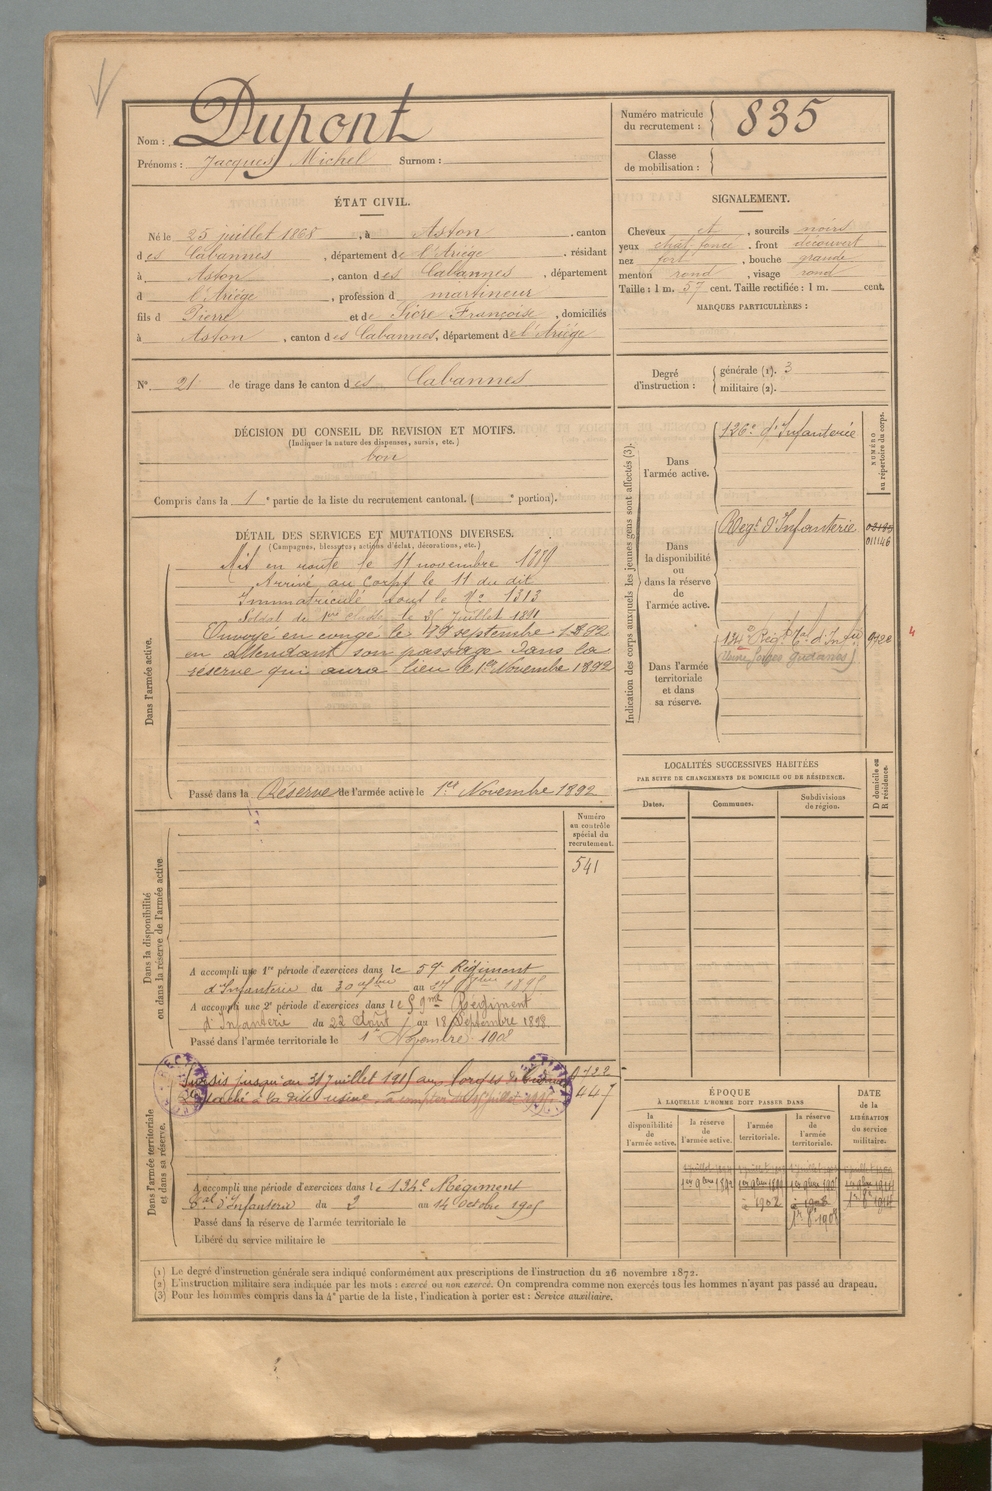 Nom : Dupont
Prénoms : Jacques Michel Surnom :
Numéro matricule du recrutement : 835
Classe de mobilisation :
ÉTAT CIVIL.
Né le 25 juillet 1868, à Aston, canton
des Cabannes, département de l'Ariége, résidant
à Aston, canton des Cabannes, département
d l'Ariége, profession d martineur
fils d Pierre et de Sicre Françoise, domiciliés
à Aston, canton des Cabannes, département de l'Ariége
N° 21 de tirage dans le canton des Cabannes
SIGNALEMENT.
Cheveux et, sourcils noirs
yeux chat. foncé, front découvert
nez fort, bouche grande
menton rond, visage rond
Taille : 1 m. 57 cent. Taille rectifiée : 1 m. cent.
MARQUES PARTICULIÈRES :
Degré d'instruction : générale (1). 3
militaire (2).
DÉCISION DU CONSEIL DE REVISION ET MOTIFS.
(Indiquer la nature des dispenses, sursis, etc.)
bon
Compris dans la 1e partie de la liste du recrutement cantonal. ( e portion).
DÉTAIL DES SERVICES ET MUTATIONS DIVERSES.
(Campagnes, blessures, actions d'éclat, décorations, etc.)
Dans l'armée active.
Mis en route le 11 novembre 1889
Arrivé au Corps le 11 du dit
Immatriculé sous le N° 1313
Soldat de 1re classe le Juillet 1891
Envoyé en congé le septembre 1892
en attendant son passage dans la
réserve qui aura lieu le 1er Novembre 1892
Passé dans la Réserve de l'armée active le 1er Novembre 1892
Indication des corps auxquels les jeunes gens sont affectés (3).
NUMÉRO au répertoire du corps.
Dans l'armée active.
126e d'Infanterie
Dans la disponibilité ou dans la réserve de l'armée active.
Regt d'Infanterie
011146
Dans l'armée territoriale et dans sa réserve.
134e Régt Tal d'Infie
4
LOCALITÉS SUCCESSIVES HABITÉES
PAR SUITE DE CHANGEMENTS DE DOMICILE OU DE RÉSIDENCE.
Dates. Communes. Subdivisions de région. D domicile ou R résidence.
Dans la disponibilité ou dans la réserve de l'armée active.
Numéro au contrôle spécial du recrutement.
541
A accompli une 1re période d'exercices dans le 59e Régiment
d'Infanterie du 30 au
A accompli une 2e période d'exercices dans le 59me Régiment
d'Infanterie du 22 Août au 18 Septembre 1898
Passé dans l'armée territoriale le 1er Novembre
Dans l'armée territoriale et dans sa réserve.
Sursis jusqu'au 31 juillet 1915 aux Forges de
à la dite usine, à compter du juillet
447
A accompli une période d'exercices dans le 134e Régiment
Tal d'Infanterie du 2 au 14 Octobre 1905
Passé dans la réserve de l'armée territoriale le
Libéré du service militaire le
ÉPOQUE
À LAQUELLE L'HOMME DOIT PASSER DANS
la disponibilité de l'armée active.
la réserve de l'armée active.
l'armée territoriale.
la réserve de l'armée territoriale.
DATE de la LIBÉRATION du service militaire.
1er 9bre 1892
1902
(1) Le degré d'instruction générale sera indiqué conformément aux prescriptions de l'instruction du 26 novembre 1872.
(2) L'instruction militaire sera indiquée par les mots : exercé ou non exercé. On comprendra comme non exercés tous les hommes n'ayant pas passé au drapeau.
(3) Pour les hommes compris dans la 4e partie de la liste, l'indication à porter est : Service auxiliaire.